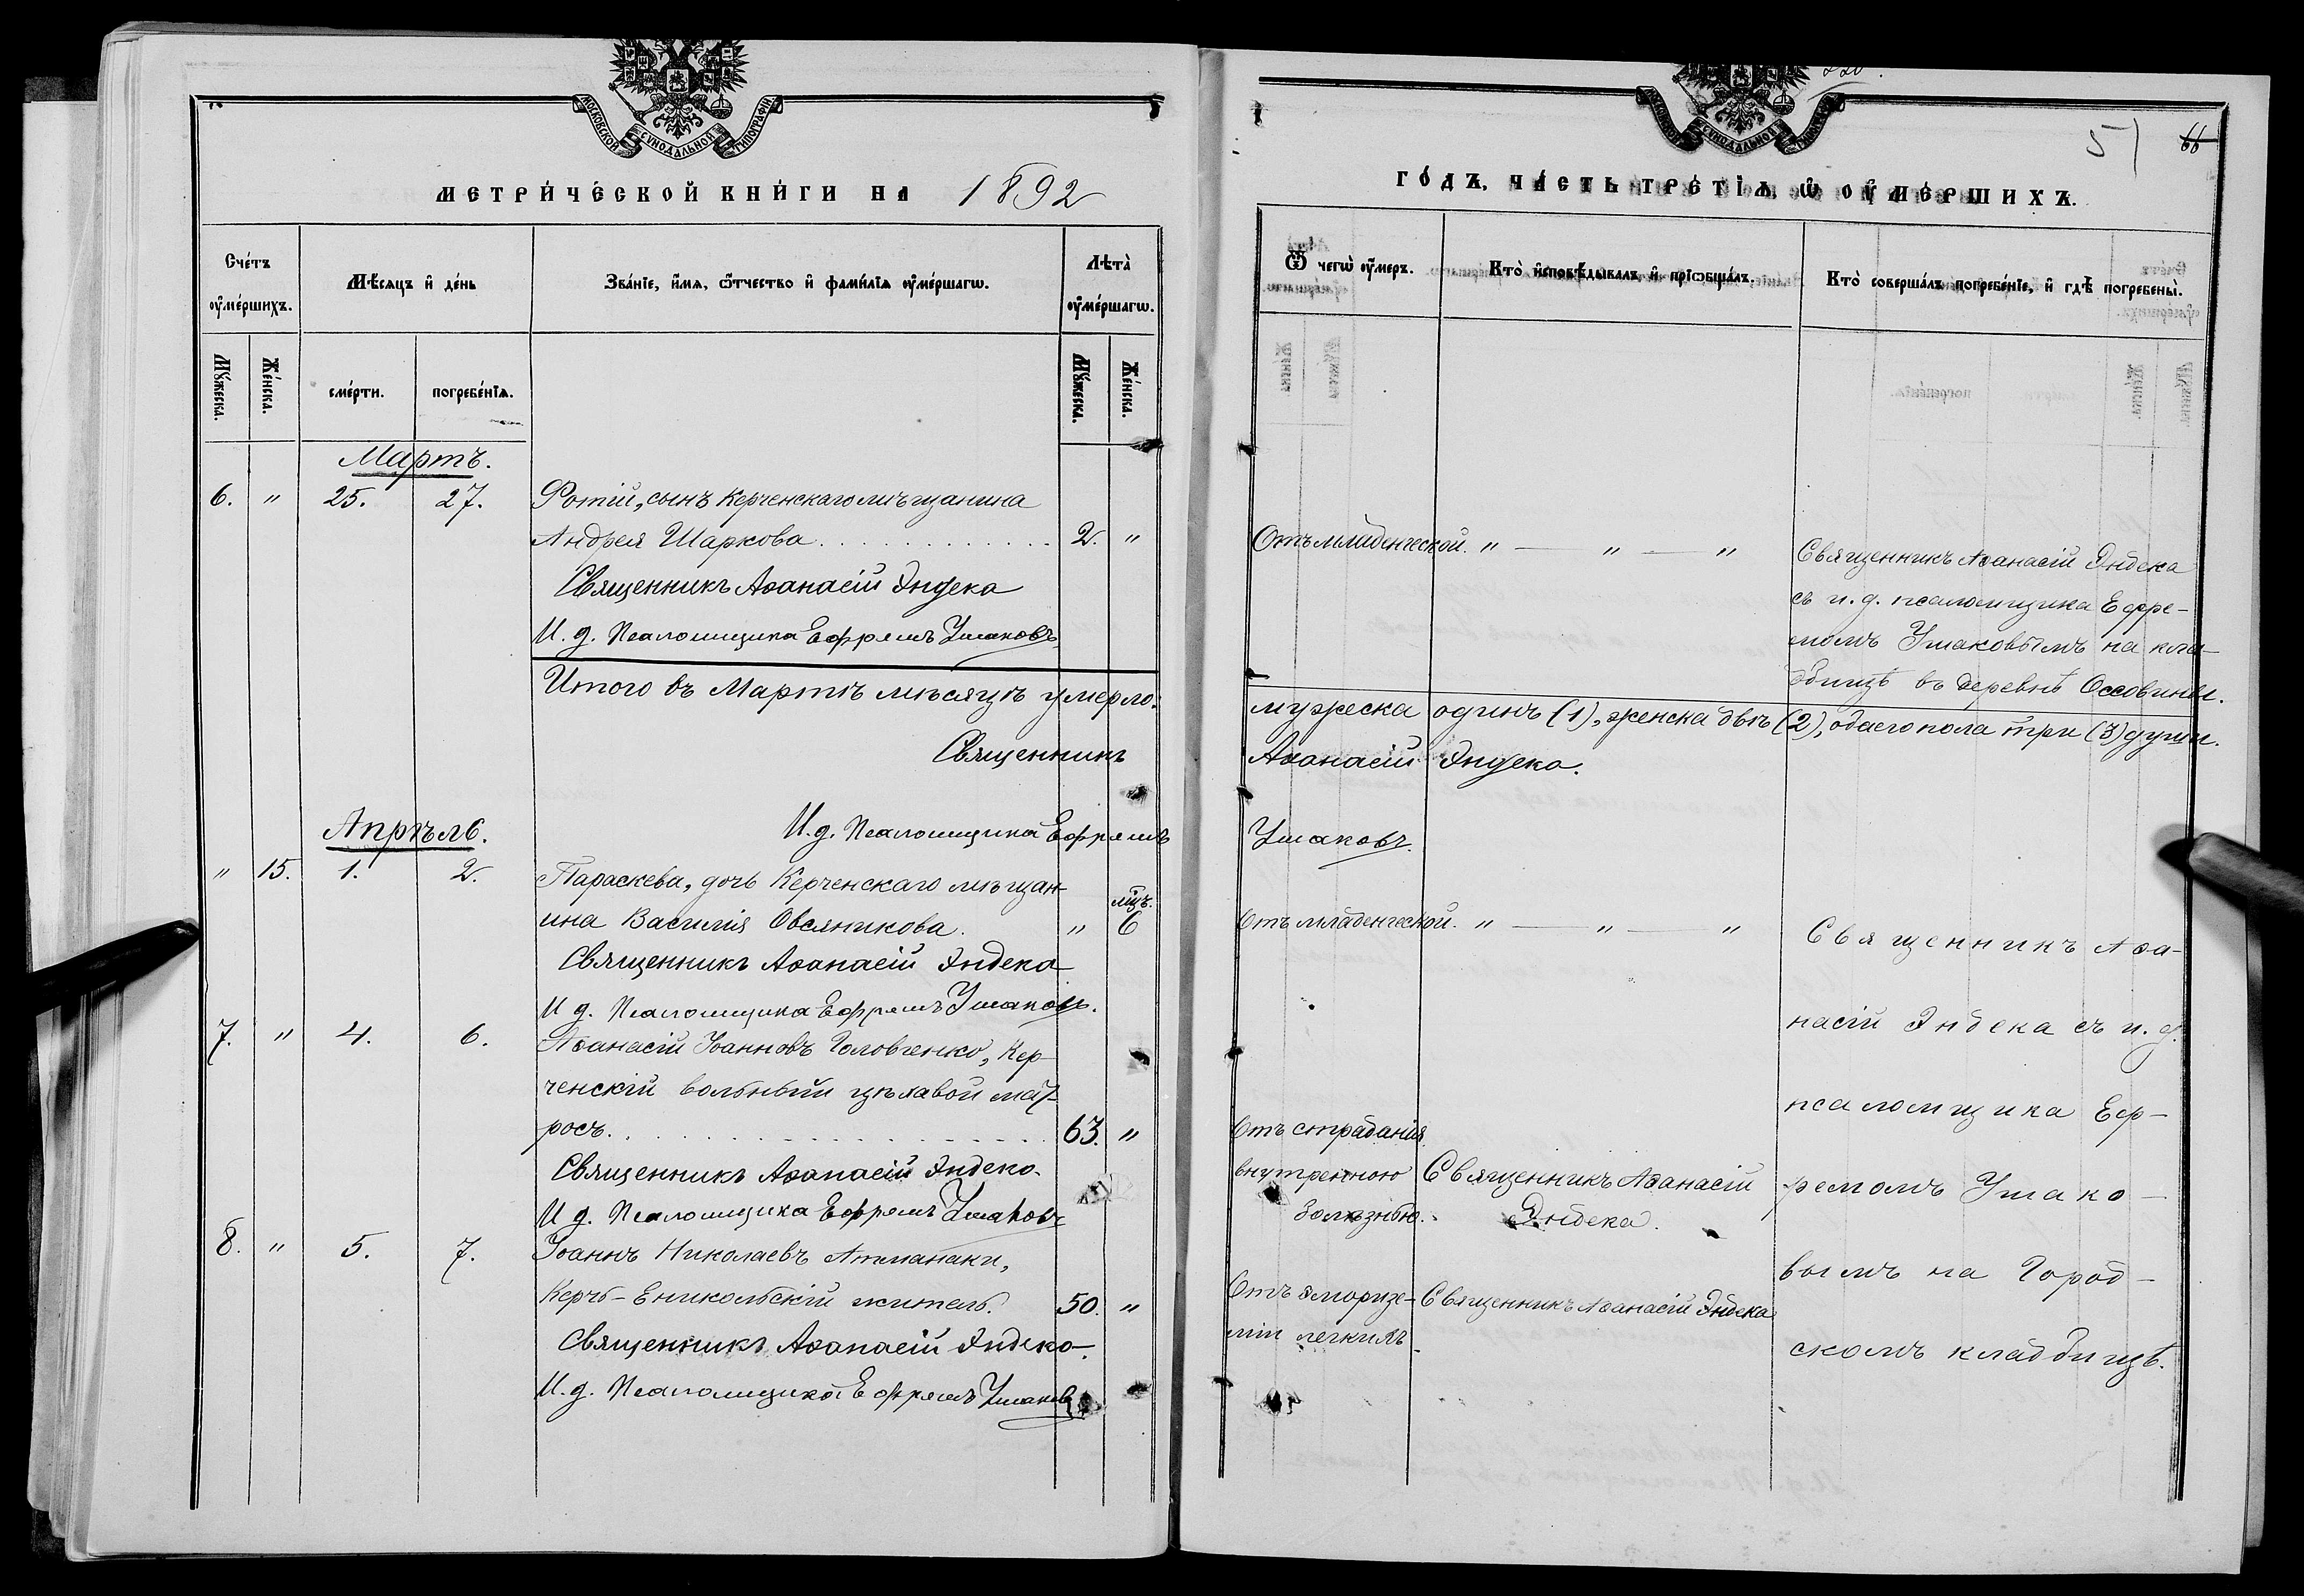 МОСКОВСКОЙ СѴНОДАЛЬНОЙ ТИПОГРАФІИ
МЕТРИ́ЧЕСКОЙ КНИ́ГИ НА 1892
Сче́тъ ᲂу҆ме́ршихъ.
Мѣ́сяцъ и҆ де́нь
Зва́нїе, и҆́мѧ, ѻ҆́тчество и҆ фами́лїѧ ᲂу҆ме́ршагѡ.
Лѣта̀ ᲂу҆ме́ршагѡ.
Мꙋ́жеска. Же́нска. сме́рти. погребе́нїѧ. Мꙋ́жеска. Же́нска.
Мартъ.
6. " 25. 27. Фотій, сынъ Керченскаго мѣщанина
Андрея Шаркова . . . . . . . . . . . 2. "
Священникъ Аѳанасій Эндека
И. д. Псаломщика Ефремъ Ушаковъ
Итого въ Мартѣ мѣсяцѣ умерло:
Священникъ
И. д. Псаломщика Ефремъ
Апрѣль.
" 15. 1. 2. Параскева, дочь Керченскаго мѣщан-
мѣц.
ина Василія Овсяникова. " 6
Священникъ Аѳанасій Эндека
И д. Псаломщика Ефремъ Ушаковъ.
7. " 4. 6. Аѳанасій Іоанновъ Головченко, Кер-
ченскій вольный цѣховой мат-
росъ. . . . . . . . . . . . . . 63. "
Священникъ Аѳанасій Эндека
И д. Псаломщика Ефремъ Ушаковъ
8. " 5. 7. Іоаннъ Николаевъ Атманаки,
Керчь-Еникольскій житель. 50. "
Священникъ Аѳанасій Эндека
И. д. Псаломщика Ефремъ Ушаковъ
МОСКОВСКОЙ СѴНОДАЛЬНОЙ ТИПОГРАФІИ
51 66
ГО́ДЪ, ЧА́СТЬ ТРЕ́ТЇѦ, Ѡ҆ ОУ҆МЕ́РШИХЪ.
Ѿ чегѡ̀ ᲂу҆́меръ.
Кто̀ и҆сповѣ́дывалъ и҆ прїѡбща́лъ.
Кто̀ соверша́лъ погребе́нїе, и҆ гдѣ̀ погребены̀.
Отъ младенческой. " — " — " Священникъ Аѳанасій Эндека
съ и. д. псаломщика Ефре-
момъ Ушаковымъ на кла-
дбищѣ въ деревнѣ Оссовины.
мужеска одинъ (1), женска двѣ (2), обоего пола три (3) души.
Аѳанасій Эндека.
Ушаковъ.
Отъ младенческой. " — " — " Священникъ Аѳа-
насій Эндека съ и. д.
псаломщика Еф-
ремомъ Ушако-
вымъ на Город-
скомъ кладбищѣ.
Отъ страданія
внутреннею
болѣзнью.
Священникъ Аѳанасій
Эндека.
Отъ
легкихъ
Священникъ Аѳанасій Эндека